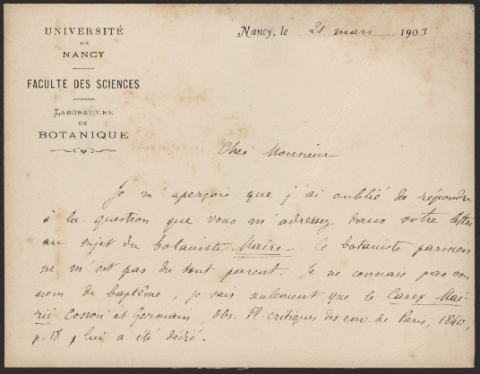 UNIVERSITÉ
DE
NANCY
FACULTÉ DES SCIENCES
LABORATOIRE
DE
BOTANIQUE
Nancy, le 21 mars 1903
Cher Monsieur
Je m'aperçois que j'ai oublié de répondre
à la question que vous m'adressez dans votre lettre
au sujet du botaniste Maire. Ce botaniste parisien
ne m'est pas du tout parent. Je ne connais pas son
nom de baptême, je sais seulement que le Carex Mai-
rii Cosson et Germain, Obs. Pl. critiques des env. de Paris, 1840,
p. 18, lui a été dédié.